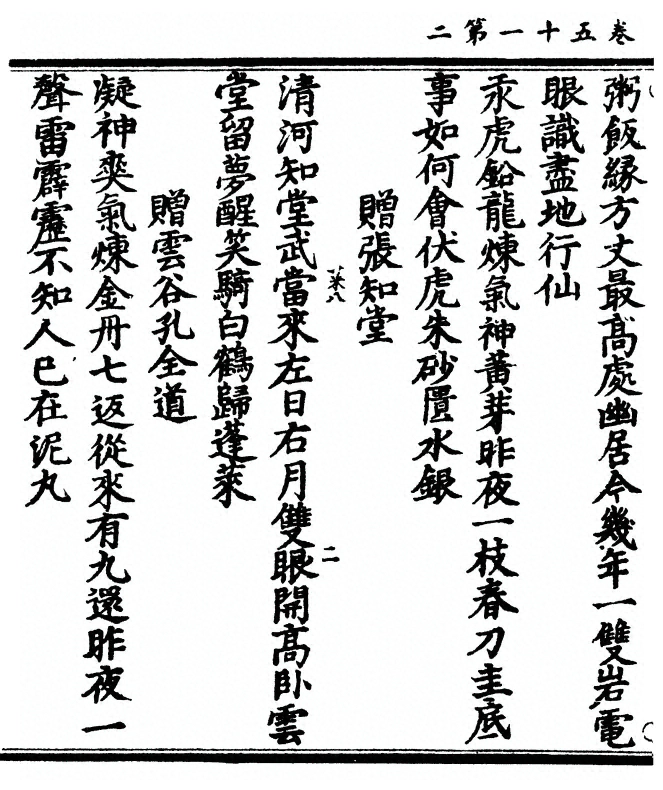 卷五十一第二
粥飯緣方丈最髙處幽居今幾年一雙岩電
眼識盡地行仙
汞虎鉛龍煉氣神黃芽昨夜一枝春刀圭底
事如何會伏虎朱砂匱水銀
贈張知堂
清河知堂武當來左日右月雙眼開髙臥雲
二
堂留夢醒笑騎白鶴歸蓬萊
贈雲谷孔全道
凝神爽氣煉金丹七返從來有九還昨夜一
聲雷霹靂不知人已在泥丸